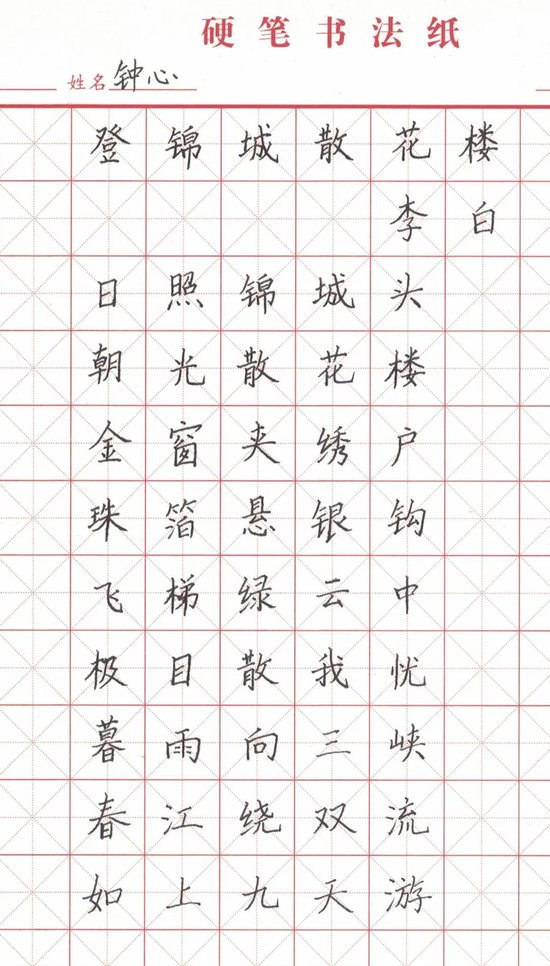 硬笔书法纸
姓名 钟心
登锦城散花楼
李白
日照锦城头
朝光散花楼
金窗夹绣户
珠箔悬银钩
飞梯绿云中
极目散我忧
暮雨向三峡
春江绕双流
如上九天游